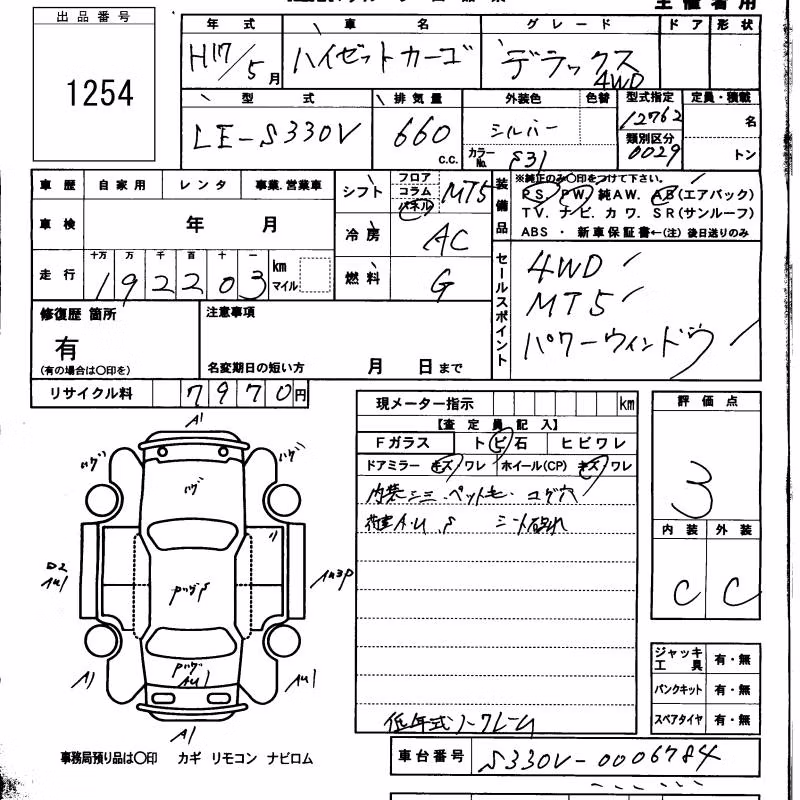 主催者用
出品番号
1254
年式 車名 グレード ドア 形状
H17/5月 ハイゼットカーゴ デラックス 4WD
型式 排気量 外装色 色替 型式指定 定員・積載
LE-S330V 660 c.c. シルバー 12762 名
カラーNo. S31 類別区分 0029 トン
車歴 自家用 レンタ 事業.営業車
シフト フロア コラム パネル MT5
装備品 ※純正のみ○印をつけて下さい。
PS. PW. 純AW. AB(エアバック)
TV. ナビ. カワ. SR(サンルーフ)
ABS ・ 新車保証書←(注) 後日送りのみ
車検 年 月
冷房 AC
走行 十万 万 千 百 十 一
192203 km マイル
燃料 G
セールスポイント
4WD
MT5
パワーウィンドウ
修復歴 箇所
有
(有の場合は○印を)
注意事項
名変期日の短い方 月 日まで
リサイクル料 7970円
現メーター指示 km
【査定員記入】
Fガラス トビ石 ヒビワレ
ドアミラー キズ/ワレ ホイール(CP) キズ/ワレ
内装シミ ペットモ コゲ穴
荷室A.U.S シート破れ
低年式ノークレーム
評価点
3
内装 外装
C C
ジャッキ工具 有・無
パンクキット 有・無
スペアタイヤ 有・無
A1
ハゲ ハゲ
ハゲ
D2
AU1
AU3P
PハゲS
Pハゲ
AU1
A1 AU1
A1
事務局預り品は○印 カギ リモコン ナビロム
車台番号 S330V-0006784